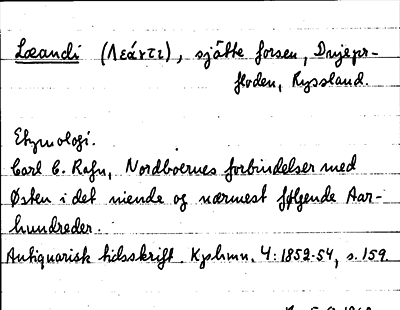 Læandi (Λεάντι), sjätte forsen, Dnjepr-
floden, Ryssland.
Etymologi.
Carl C. Rafn, Nordboernes forbindelser med
Østen i det niende og nærmest følgende Aar-
hundreder.
Antiquarisk tidsskrift. Kphmn. 4: 1852-54, s. 159.